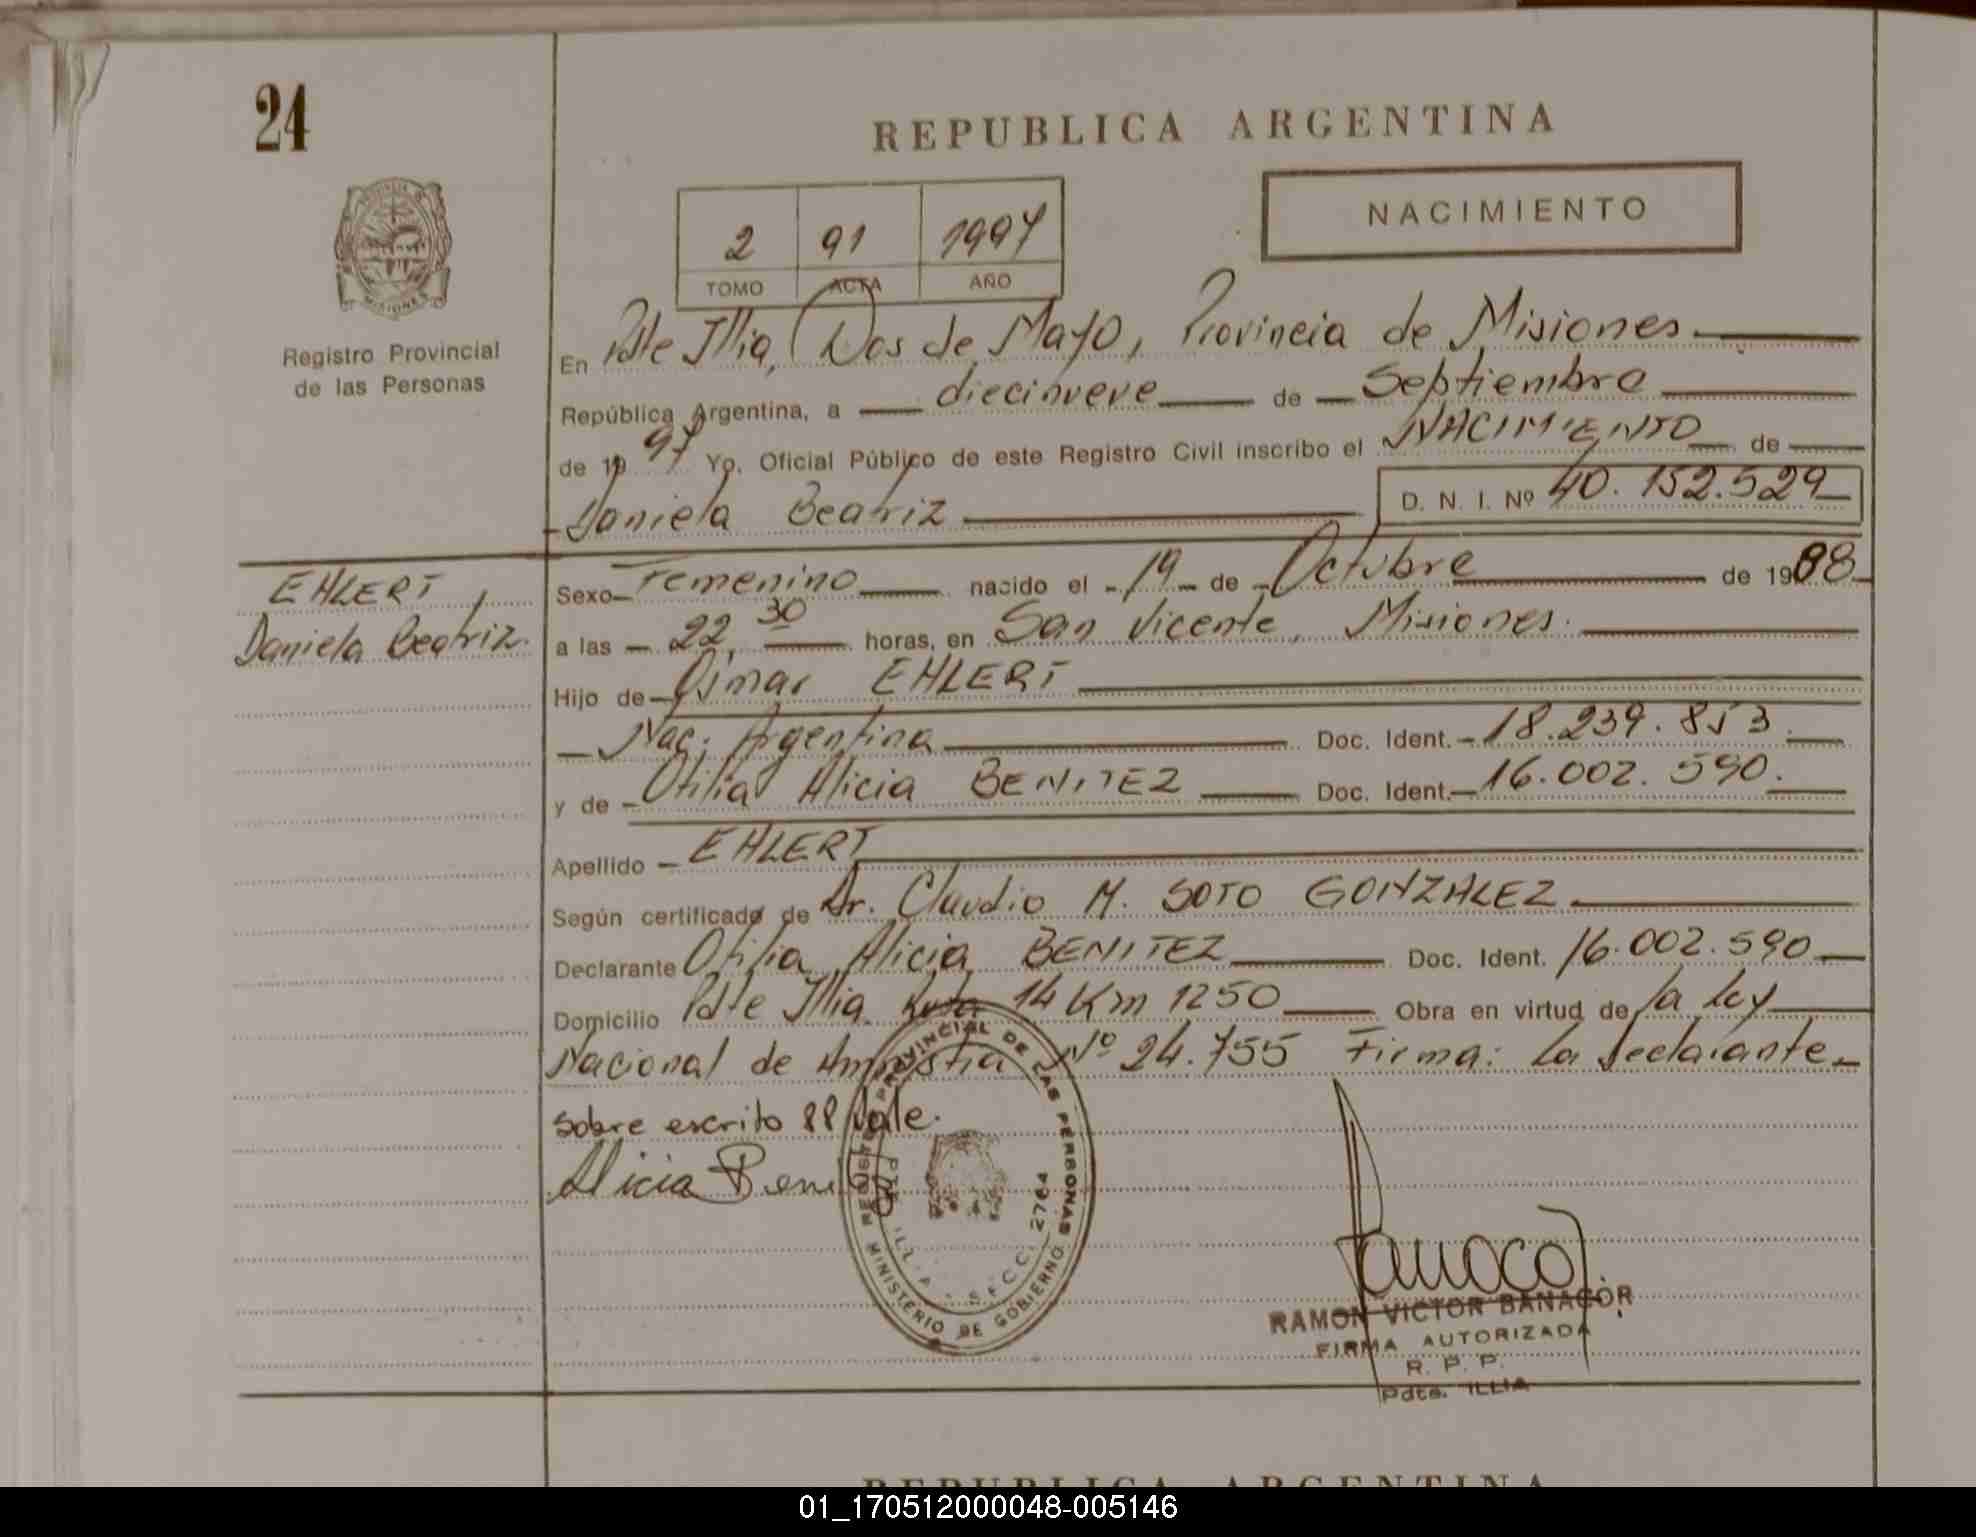 24
REPUBLICA ARGENTINA
NACIMIENTO
2 91 1997
TOMO ACTA AÑO
Registro Provincial
de las Personas
En Pdte Illia, Dos de Mayo, Provincia de Misiones
República Argentina, a diecinueve de Septiembre
de 19 97 Yo, Oficial Público de este Registro Civil inscribo el NACIMIENTO de
Daniela Beatriz D. N. I. Nº 40.152.529
EHLERT,
Daniela Beatriz.
Sexo Femenino nacido el 19 de Octubre de 1988
a las 22,30 horas, en San Vicente, Misiones.
Hijo de Osmar EHLERT
Nac: Argentina Doc. Ident. 18.239.853
y de Otilia Alicia BENITEZ Doc. Ident. 16.002.590.
Apellido EHLERT
Según certificado de Dr. Claudio M. SOTO GONZALEZ
Declarante Otilia Alicia BENITEZ Doc. Ident. 16.002.590
Domicilio Pdte Illia Ruta 14 Km 1250 Obra en virtud de la Ley
Nacional de Amnistia Nº 24.755 Firma: La declarante
sobre escrito 88 vale.
Alicia Benitez
REGISTRO PROVINCIAL DE LAS PERSONAS
PTE. ILLIA SECC. 2764
MINISTERIO DE GOBIERNO
RAMON VICTOR BANACOR
FIRMA AUTORIZADA
R. P. P.
Pdte. ILLIA
REPUBLICA ARGENTINA
01_170512000048-005146